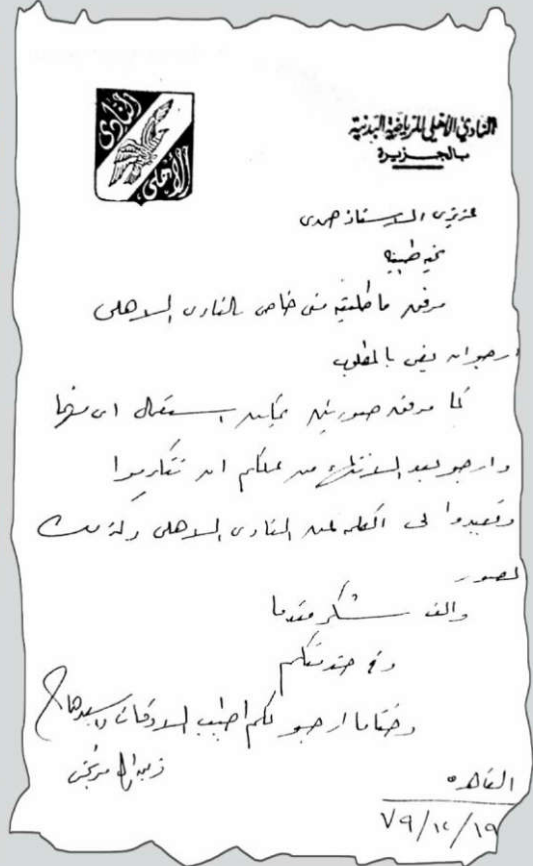 النادي
الأهلى
النادي الأهلي للرياضة البدنية
بالجزيرة
عزيزى الاستاذ حمدى
تحيه طيبه
مرفق ما طلبتم منى خاص بالنادى الاهلى
ارجو ان يفى بالمطلوب
كما مرفق صورتين يمكن استعمال اى منهما
وارجو بعد الانتهاء من عملكم ان تتكرموا
وتعيدوا لى الكلمه عن النادى الاهلى وكذلك
الصور
والف شكر مقدما
وفى خدمتكم
وختاما ارجو لكم اطيب الاوقات واسعدها
القاهره
٧٩/١٢/١٩